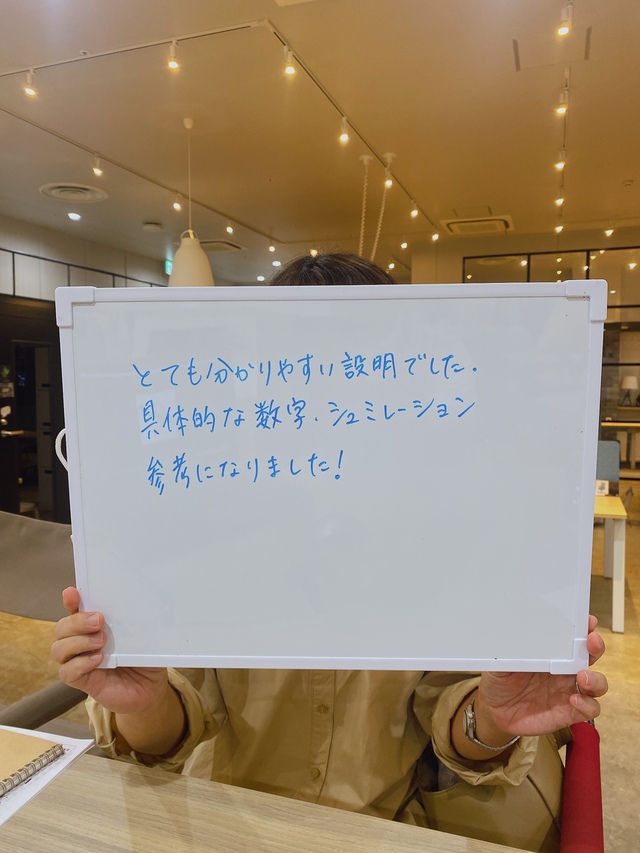 とても分かりやすい説明でした.
具体的な数字、シュミレーション
参考になりました!